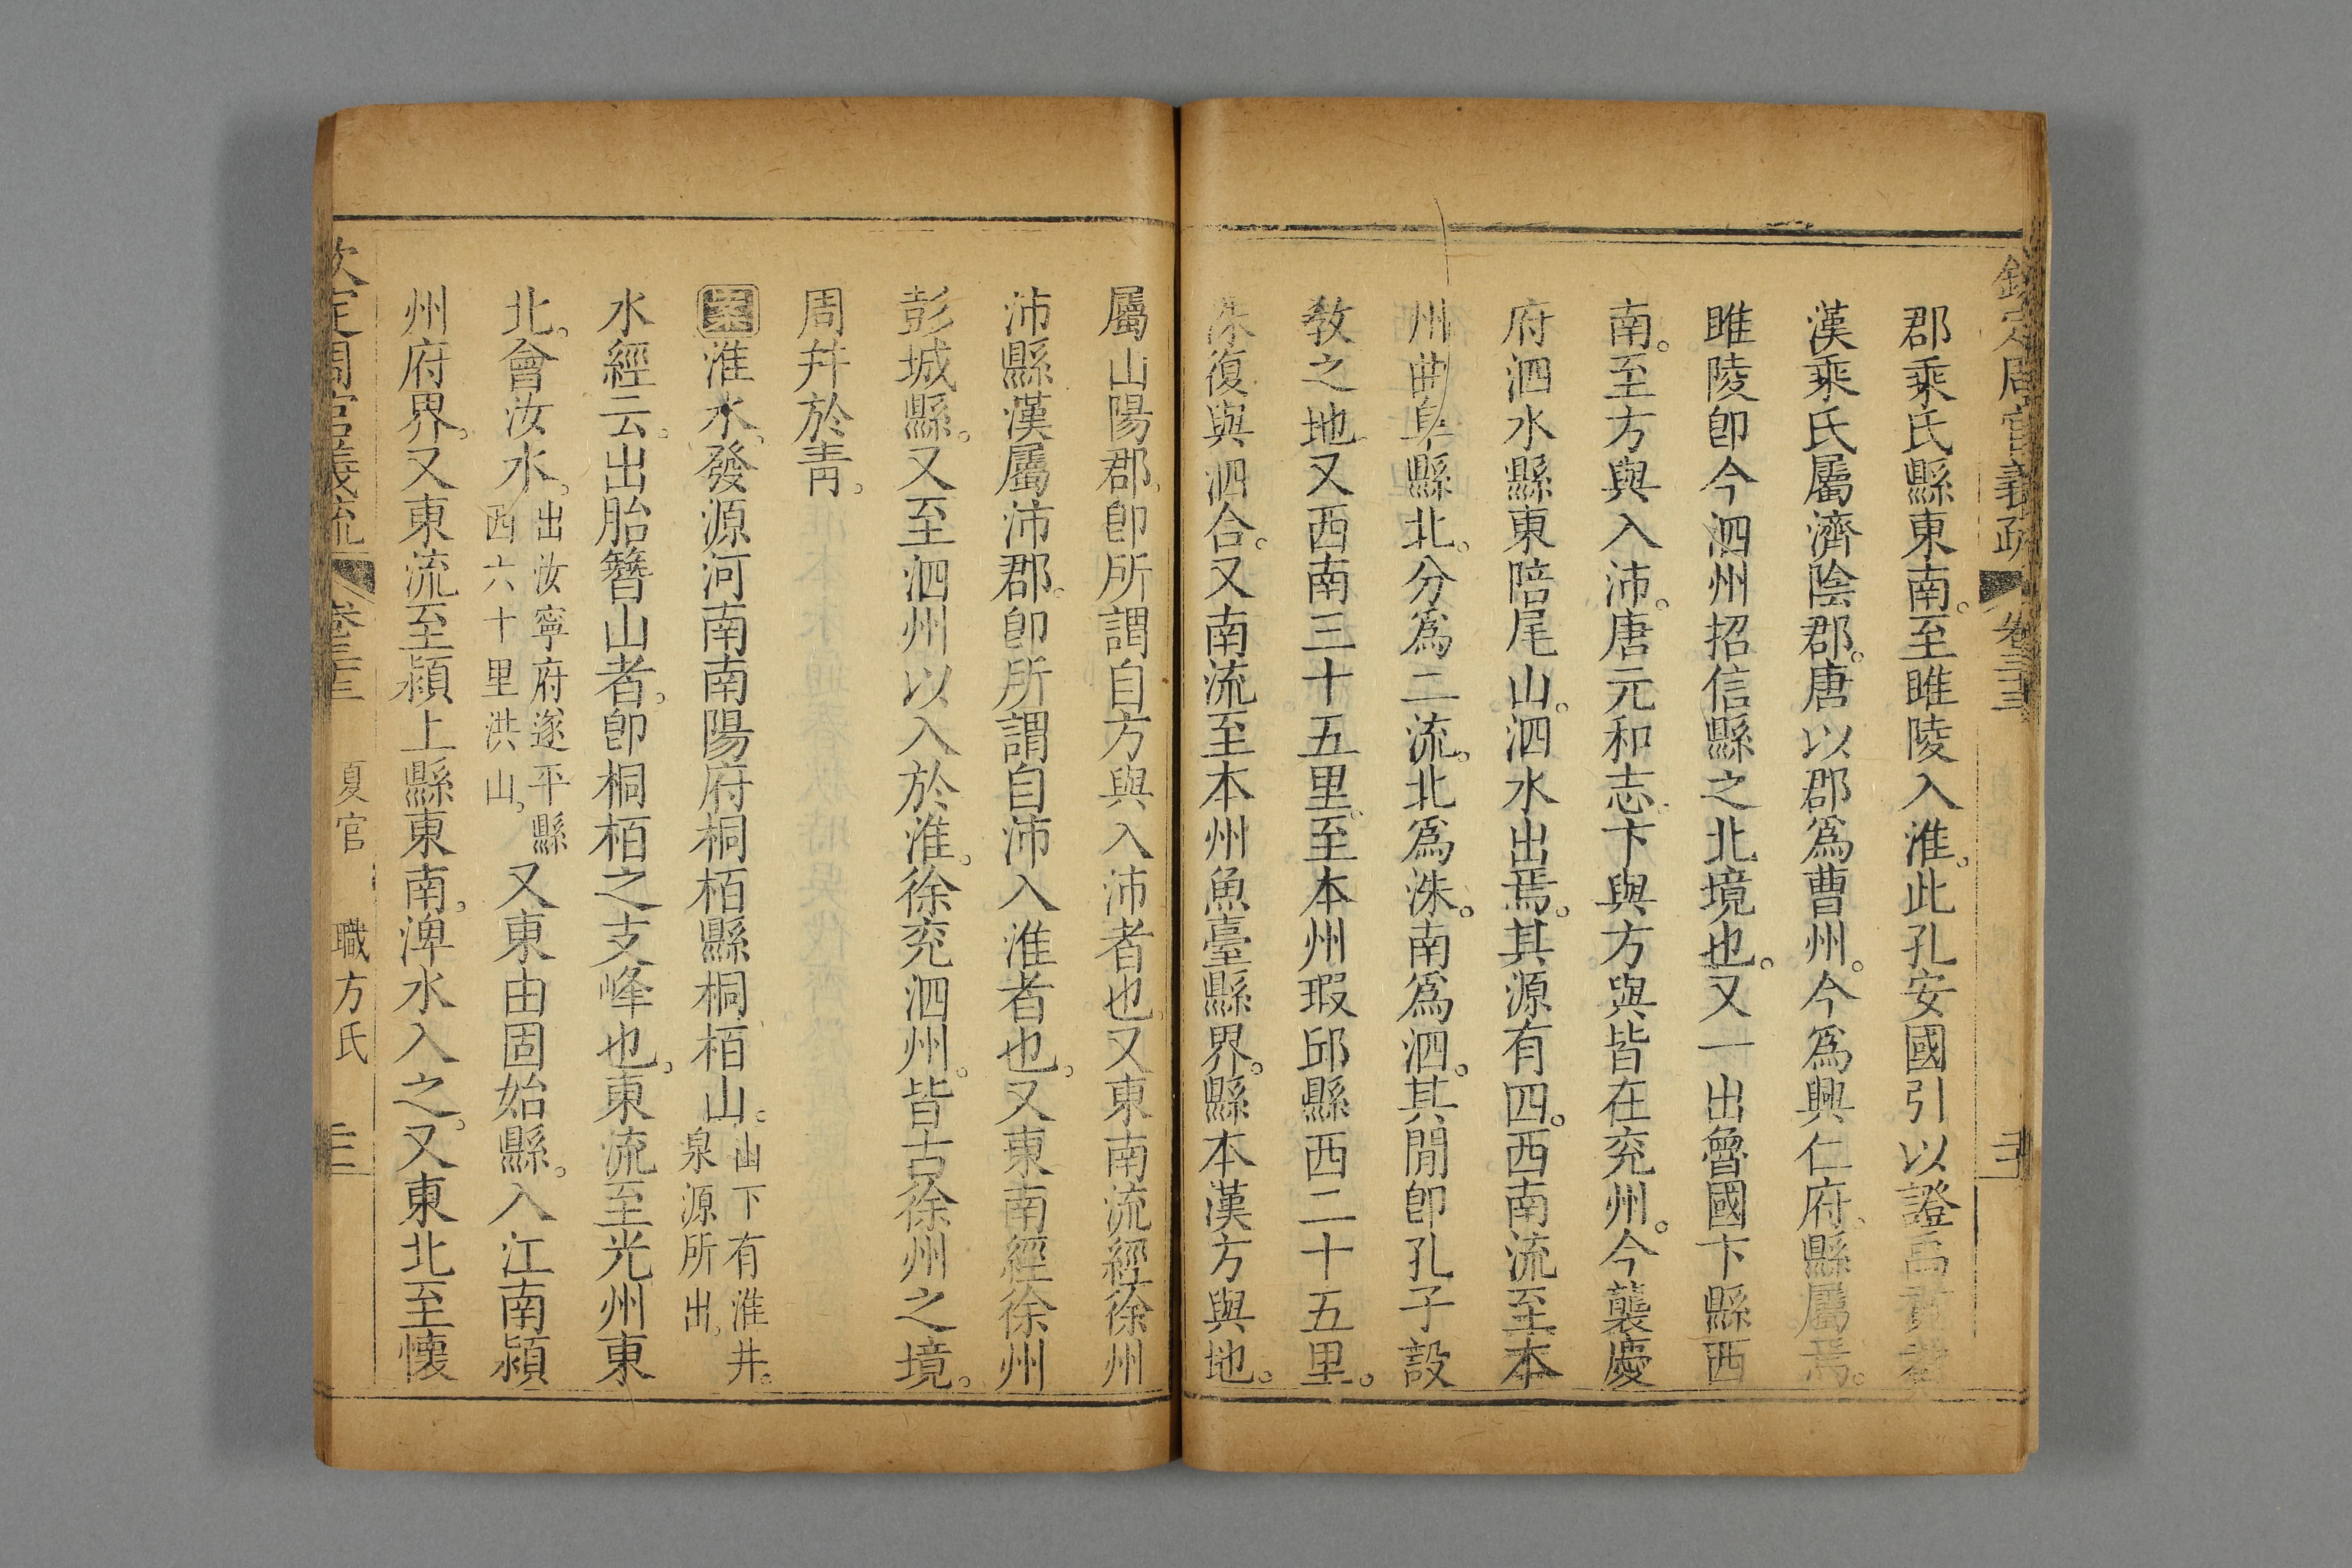 欽定周官義疏 卷三十三 三十
郡乘氏縣東南。至睢陵入淮。此孔安國引以證禹貢者
漢乘氏屬濟陰郡。唐以郡為曹州。今為興仁府。縣屬焉。
睢陵卽今泗州招信縣之北境也。又一出魯國卞縣西
南。至方與入沛。唐元和志。卞與方與皆在兖州。今襲慶
府泗水縣東陪尾山。泗水出焉。其源有四。西南流至本
州曲阜縣北。分為二流。北為洙。南為泗。其閒卽孔子設
教之地。又西南三十五里。至本州瑕邱縣西二十五里。
洙復與泗合。又南流至本州魚臺縣界。縣本漢方與地。
屬山陽郡。卽所謂自方與入沛者也。又東南流經徐州
沛縣。漢屬沛郡。卽所謂自沛入淮者也。又東南經徐州
彭城縣。又至泗州以入於淮。徐兖泗州。皆古徐州之境。
周并於青。
案淮水。發源河南南陽府桐栢縣桐栢山。山下有淮井。泉源所出。
水經云。出胎簪山者。卽桐栢之支峰也。東流至光州東
北。會汝水。出汝寧府遂平縣西六十里洪山。又東由固始縣。入江南潁
州府界。又東流至潁上縣東南。淠水入之。又東北至懷
欽定周官義疏 卷三十三 夏官 職方氏 三十